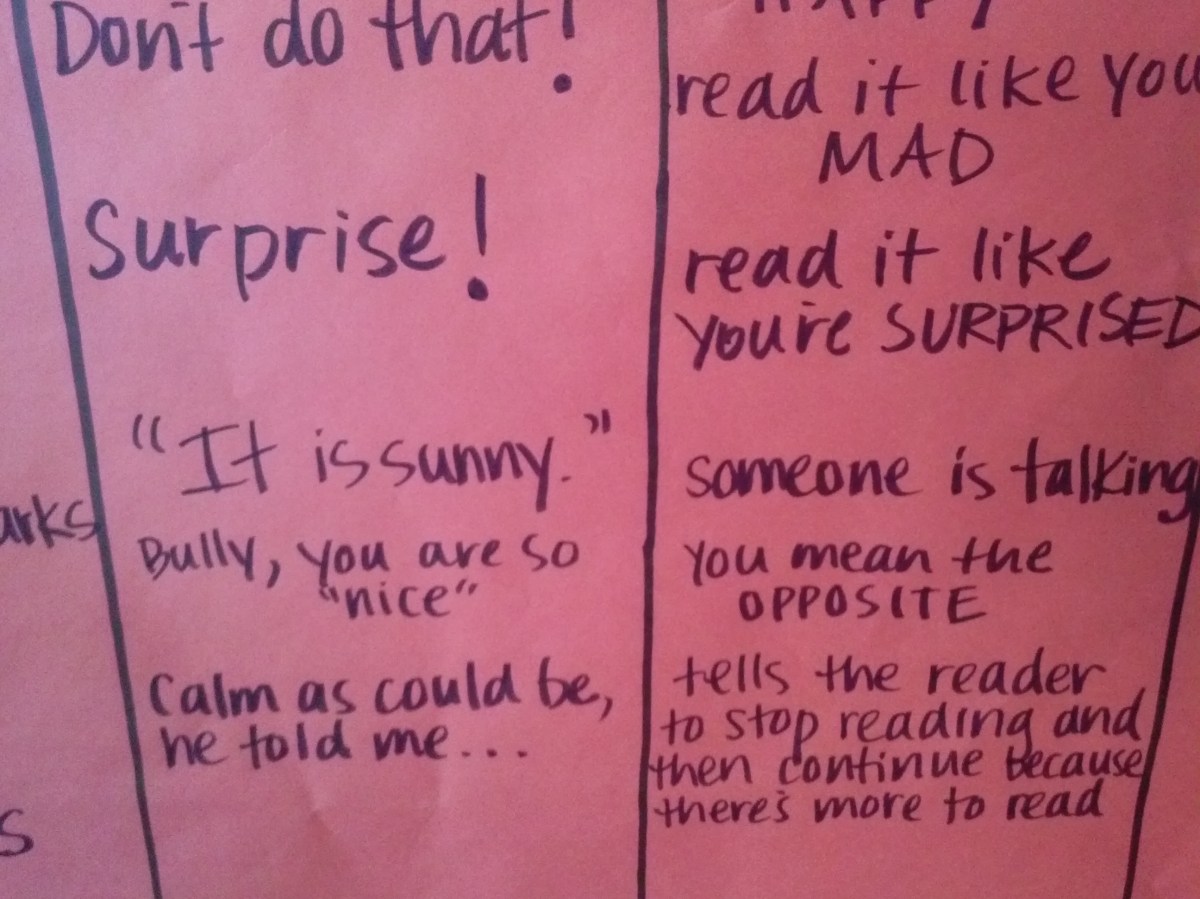 Don't do that!
HAPPY
read it like you
MAD
Surprise!
read it like
you're SURPRISED
"It is sunny."
someone is talking
arks
Bully, you are so
"nice"
you mean the
OPPOSITE
Calm as could be,
he told me...
tells the reader
to stop reading and
then continue because
there's more to read
s